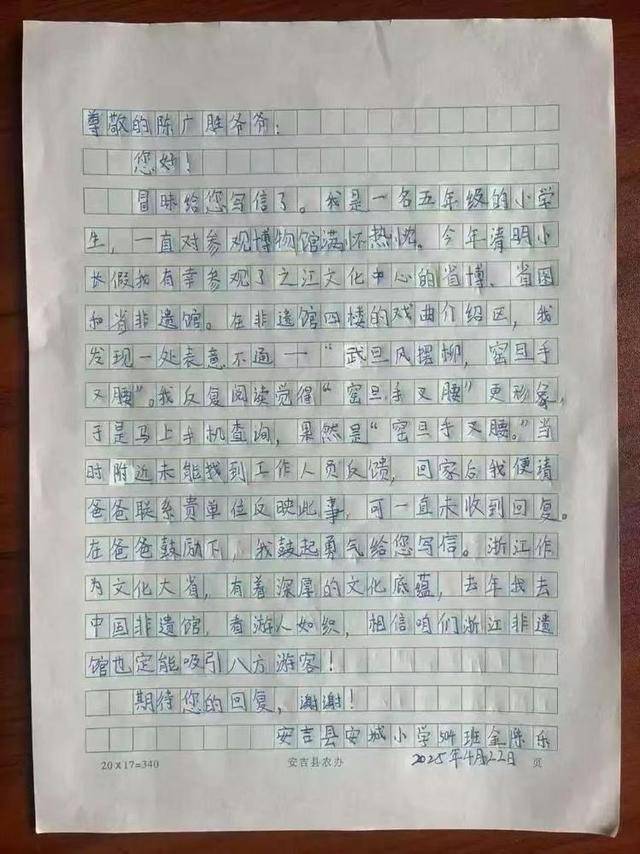 尊敬的陈广胜爷爷：
您好！
冒昧给您写信了。我是一名五年级的小学
生，一直对参观博物馆满怀热忱。今年清明小
长假我有幸参观了之江文化中心的省博、省图
和省非遗馆。在非遗馆四楼的戏曲介绍区，我
发现一处表意不通——“武旦风摆柳，窑旦手
叉腰”。我反复阅读觉得“窑旦手叉腰”更形象，
于是马上手机查询，果然是“窑旦手叉腰。”当
时附近未能找到工作人员反馈，回家后我便请
爸爸联系贵单位反映此事，可一直未收到回复。
在爸爸鼓励下，我鼓起勇气给您写信。浙江作
为文化大省，有着深厚的文化底蕴，去年我去
中国非遗馆，看游人如织，相信咱们浙江非遗
馆也定能吸引八方游客！
期待您的回复，谢谢！
安吉县安城小学504班金乐乐
20×17=340 安吉县农办 2025年4月22日 页